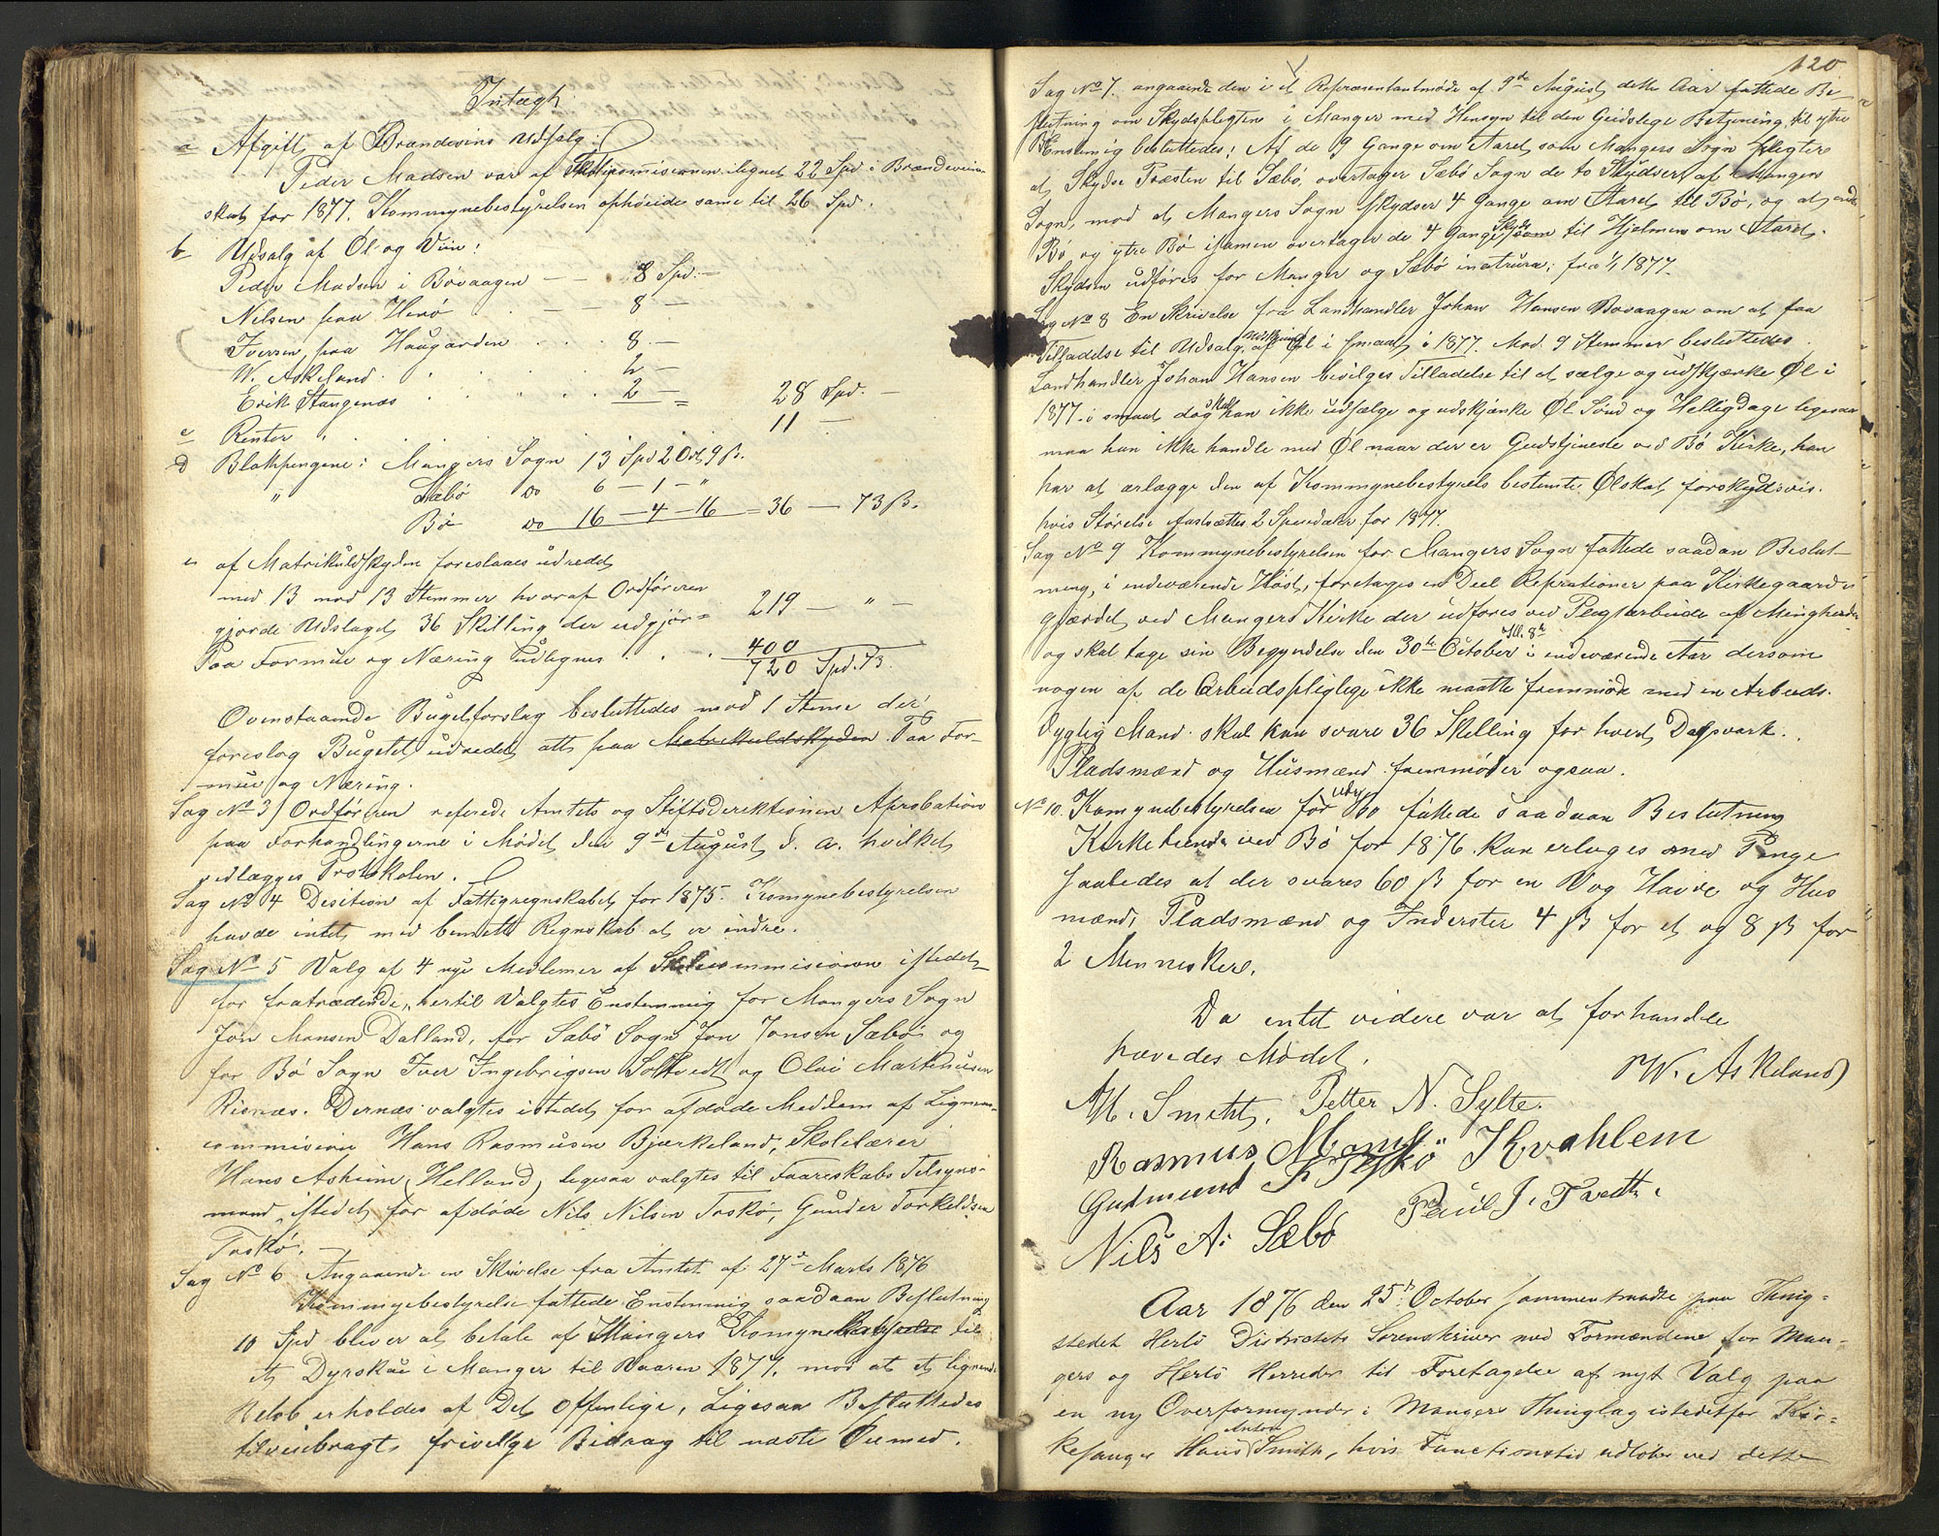 Intægt
a Afgift af Brændevins Udsalg:
Peder Madsen var af Skatcomisionen ilignet 22 Spd i Brændeviins-
skat for 1877. Kommynebestyrelsen ophøiede same til 26 Spd.
b Udsalg af Øl og Viin:
Peder Madsen i Bøvaagen — — 8 Spd. —
Nilsen paa Herø . — — 8 —
Iversen paa Haugarden . . . 8. —
W. Askeland . . . . 2 —
Erik Stangenæs . . . . . 2 — = 28 Spd. —
c Renter . . . . . . . 11 —
d Blokpengene: Mangers Sogn 13 Spd 2 Ort 9 ß.
" Sæbø do 6 — 1 — "
Bø do 16 — 4 — 16 = 36 — 73 ß.
e af Matrikulskylden foreslaaes udredet
med 13 mod 13 Stemmer hvoraf Ordføreren
gjorde Udslaget 36 Skilling der udgjør = 219 — " —
Paa Formue og Næring udlignes . . . 400
720 Spd. 73.
Ovenstaaende Bugetforslag besluttedes mod 1 Steme der
foreslog Bugetet udredet alt paa Matrikulskylden Paa For-
mue og Næring.
Sag No 3) Ordføreren referede Amtets og Stiftsderektionen Aprobation
paa Forhandlingerne i Mødet den 9de August d. a. hvilket
vedlægges Protokolen.
Sag No 4 Desition af Fattigregnskabet for 1875. Komynebestyrelsen
havde intet med bemeldte Regnskab at er indre.
Sag No 5 Valg af 4 nye Medlemer af Skolecommisionen istedet-
for fratrædende, hertil Valgtes Enstemmig for Mangers Sogn
Jon Monsen Dalland, for Sæbø Sogn Jon Jonsen Sæbø og
for Bø Sogn Iver Ingebrigsen Soltvedt og Olai Martinusen
Risnæs. Dernæs valgtes istedet for afdøde Meddlem af Lignins-
commision Hans Rasmusen Bjørkeland, Skolelærer
Hans Askim Helland, ligesaa valgtes til Faareskabs Tilsyns-
mand istedet for afdøde Nils Nilsen Toskø, Gunder Torkeldsen
Toskø. —
Sag No 6 Angaaende en Skrivelse fra Amtet af 27de Marts 1876
Kommynebestyrelse fattede Enstemmig saadaan Beslutning
10 Spd bliver at betale af Mangers Komynekasse til
et Dyrskue i Manger til Vaaren 1877, mod at et lignende
Beløb erholdes af Det offenlige, Ligesaa Besluttedes
tilveiebragt frivillge Bidrag til nævte Øiemed.
120
Sag No 7. angaaende den i et Representantmøde af 9de August dette Aar fattede Be-
slutning om Skydspligten i Manger med Hensyn til den Geistlege Betjening til ytre
Bø Enstemig besluttedes: Af de 9 Gange om Aaret som Mangers Sogn pligter
at Skydse Præsten til Sæbø, overtager Sæbø Sogn de to Skydser af Mangers
Sogn, mod at Mangers Sogn skydser 4 Gange om Aaret til Bø, og at indre
Bø og ytre Bø isamen overtager de 4 Gange Skyds som til Hjelmen om Aaret.
Skydsen udføres for Manger og Sæbø fra 1/1 1877.
Sag No 8 En Skrivelse fra Landhandler Johan Hansen Bovaagen om at faa
Tilladelse til Udsalg udskjænk af Øl i smaat i 1877. Mod 9 Stemmer besluttedes
Landhandler Johan Hansen bevilges Tilladelse til at sælge og udskjænke Øl i
1877 i smaat dog skal han ikke udsælge og udskjænke Øl Sønd og Helligdage ligesaa
maa han ikke handle med Øl naar der er Gudstjineste ved Bø Kirke, han
har at ærlægge den af Kommynebestyrels bestemte Ølskat forskudsvis.
hvis Størelse fastsættes 2 Speciedaler for 1877.
Sag No 9 Kommynebestyrelsen for Mangers Sogn fattede saadan Beslut-
ning, i indeværende Høst, foretages en Deel Reprationer paa Kirkegaards
gjærdet ved Mangers Kirke der udføres ved Pligtarbeide af Minigheden
og skal tage sin Begyndelse den 30te October Kl. 8te i indeværende Aar dersom
nogen af de Arbeidspligtige ikke maatte fremmøde med en Arbeids-
dygtig Mand skal han svare 36 Skelling for hvert Dagsværk.
Pladsmænd og Husmænd fremmøder ogsaa.
No 10. Komynebestyrelsen for ytre Bø fattede saadaan Beslutning
Kirketiende ved Bø for 1876 kan erlæges med Penge
saaledes at der svares 60 ß for en Vog Havre og Hus
mænd, Pladsmænd og Inderster 4 ß for et og 8 ß for
2 Menneskere.
Da intet videre var at forhandle
hævedes Mødet.
W. Askeland
A. Smith. Petter N. Sylte.
Rasmus Kvahlem
Gudmund Toskø Paul J. Tvedt.
Nils A. Sæbø
Aar 1876 den 25de October sammentraadte paa Thing-
stedet Herlö Districtets Sorenskriver med Formændene for Man-
gers og Herlö Herreder til Foretagelse af nyt Valg paa
en ny Overformynder i Mangers Thinglag istedetfor Kir-
kesanger Hans Anton Smith, hvis Functionstid udløber ved dette